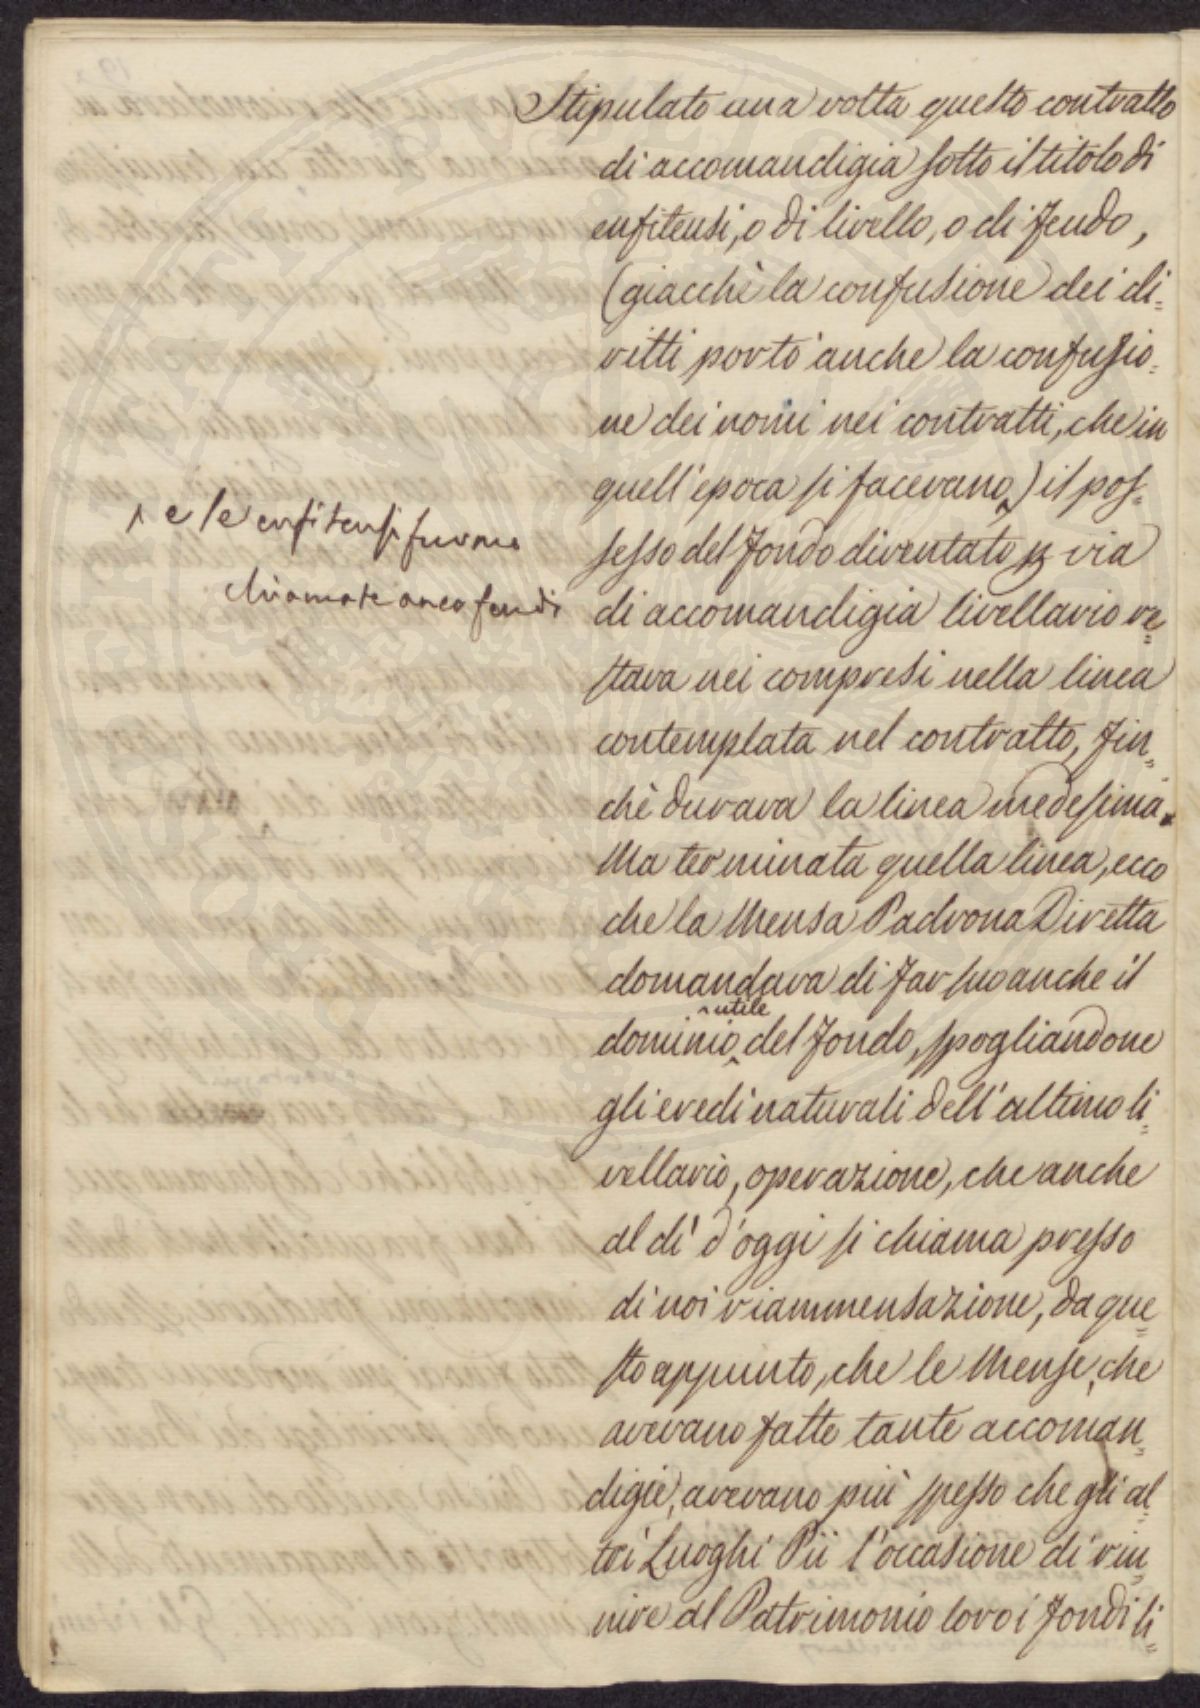 Stipulato una volta questo contratto
di accomandigia sotto il titolo di
enfiteusi, o di livello, o di feudo,
(giacchè la confusione dei di=
ritti portò anche la confusio=
ne dei nomi nei contratti, che in
quell'epoca si facevano,) il pos=
sesso del fondo diventato per via
di accomandigia livellario re=
stava nei compresi nella linea
contemplata nel contratto, fin=
chè durava la linea medesima.
Ma terminata quella linea, ecco
che la Mensa Padrona Diretta
domandava di far suo anche il
utile
dominio del fondo, spogliandone
gli eredi naturali dell'ultimo li=
vellario, operazione, che anche
al dì d'oggi si chiama presso
di noi riammensazione, da que=
sto appunto, che le Mense, che
avevano fatte tante accoman=
digie, avevano più spesso che gli al=
tri Luoghi Pii l'occasione di riu=
nire al Patrimonio loro i fondi li=
e le enfiteusi furono
chiamate anco feudi